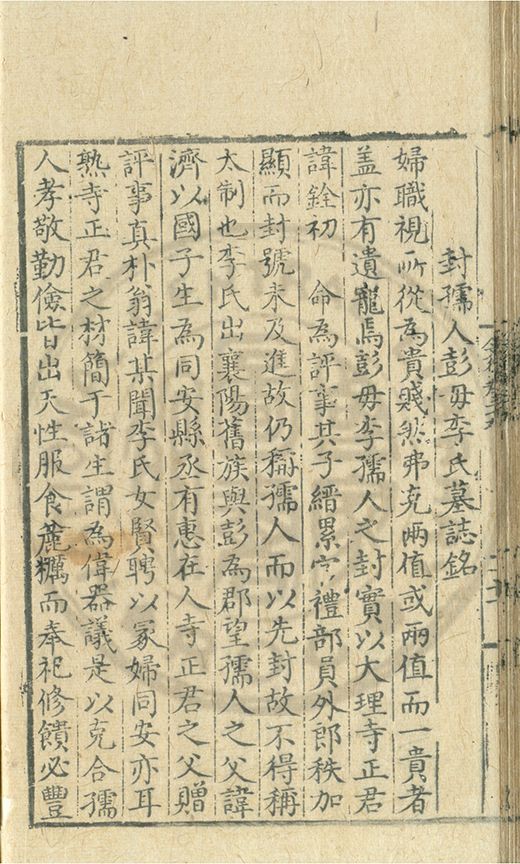 封孺人彭母李氏墓誌銘
婦職視所從為貴賤然弗克兩值或兩值而一賁者
盖亦有遺寵焉彭毋李孺人之封實以大理寺正君
諱銓初　命為評事其子縉累官禮部員外郎秩加
顯而封號未及進故仍稱孺人而以先封故不得稱
太制也李氏出襄陽舊族與彭為郡望孺人之父諱
濟以國子生為同安縣丞有惠在人寺正君之父贈
評事真朴翁諱某聞李氏女賢聘以冢婦同安亦耳
熟寺正君之材簡于諸生謂為偉器議是以克合孺
人孝敬勤儉皆出天性服食麄糲而奉祀修饋必豐